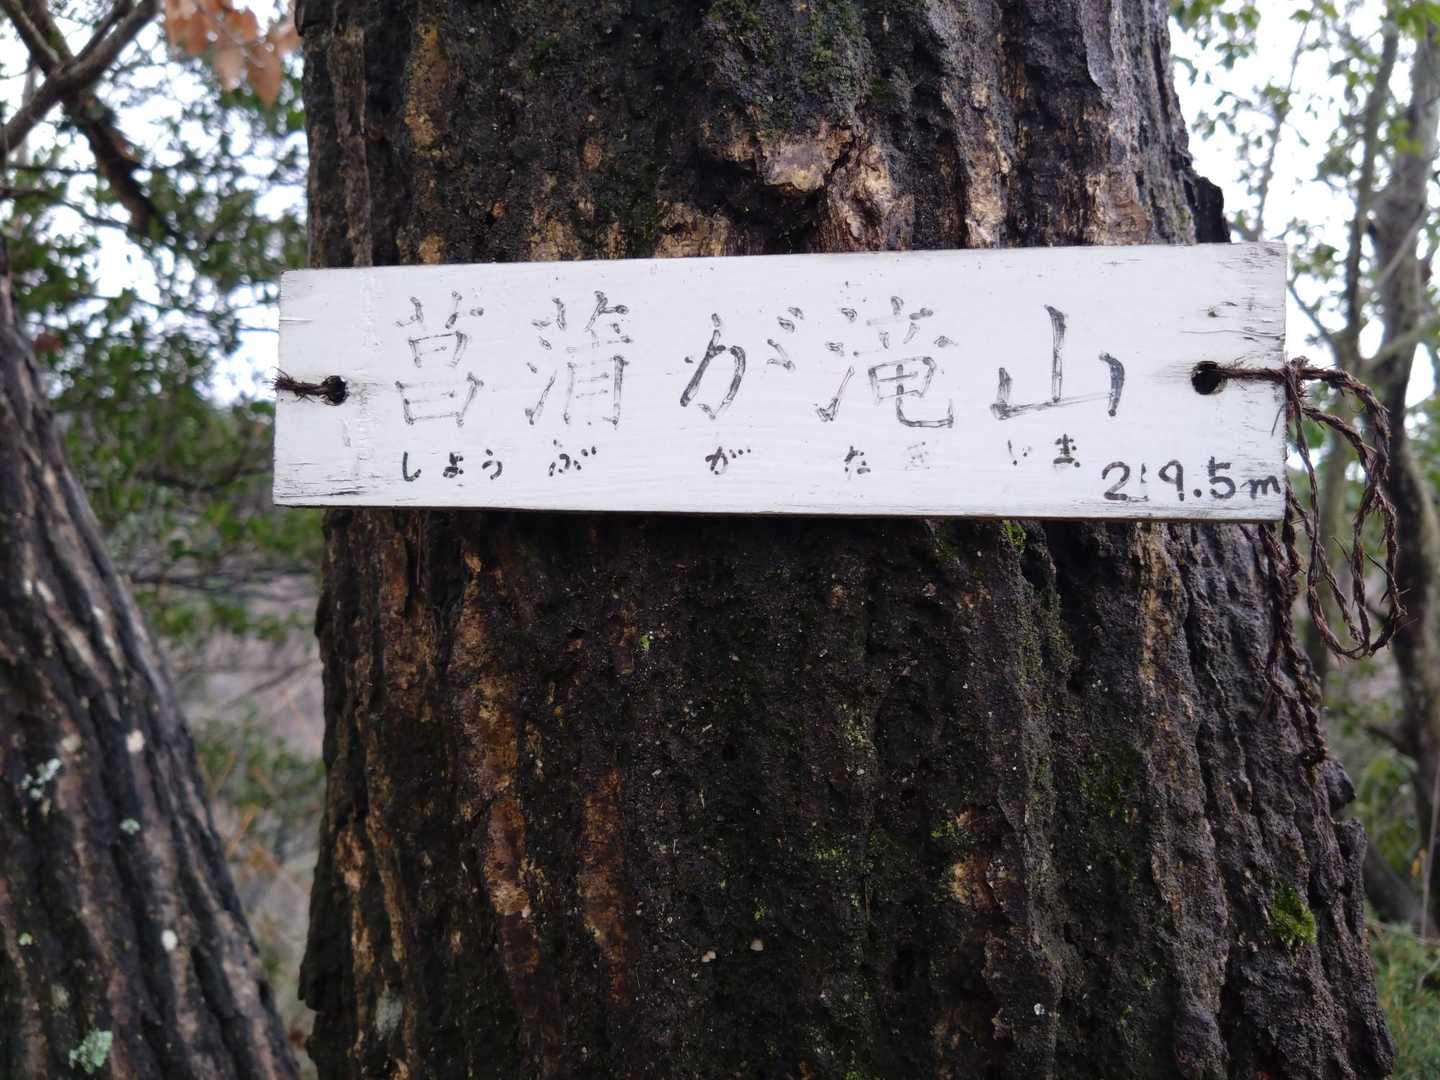 菖蒲が滝山
しょうぶ が たき やま